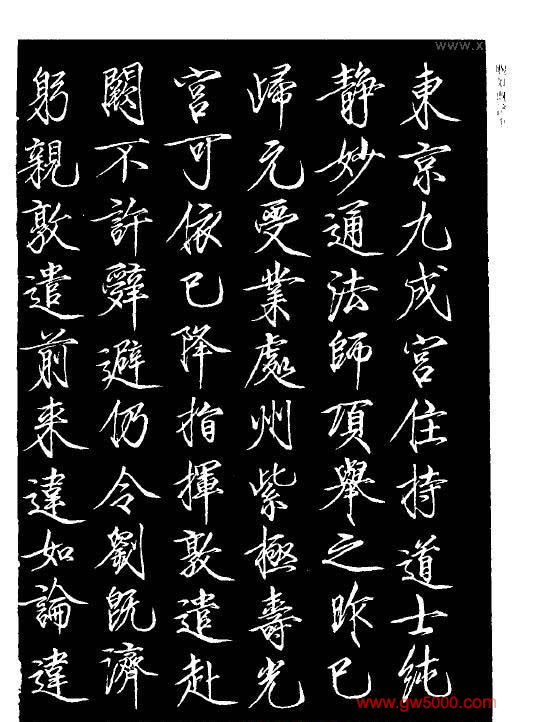 東京九成宮住持道士純
静妙通法師項舉之昨已
歸元受業處州紫極壽光
宮可依已降指揮敦遣赴
闕不許辭避仍令劉既濟
躬親敦遣前来違如論違
www.x
www.gw5000.com